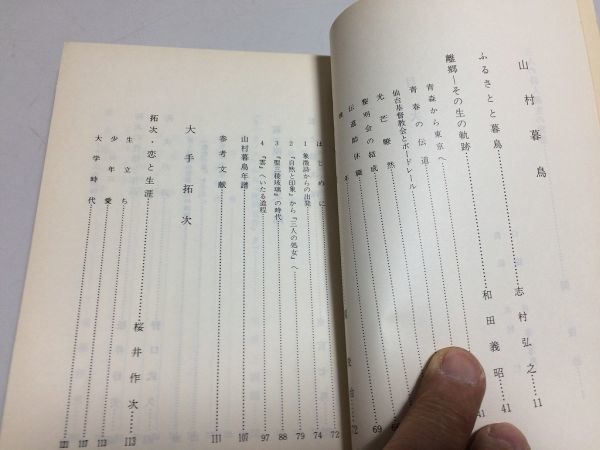 山村暮鳥
ふるさとと暮鳥 志村弘之 11
離郷―その生の軌跡 和田義昭 41
青森から東京へ 41
青春の伝道
仙台基督教会とボードレール
光芒瞭然 6
黎明会の結成 69
伝道師休職 69
晩年 72
はじめに 72
1 象徴詩からの出発 74
2 『自然と印象』から『三人の処女』へ 79
3 『聖三稜玻璃』の時代 88
4 『雲』へいたる道程 97
山村暮鳥年譜 107
参考文献 111
大手拓次
拓次・恋と生涯 桜井作次 113
生立ち 113
少年愛 117
大学時代 121